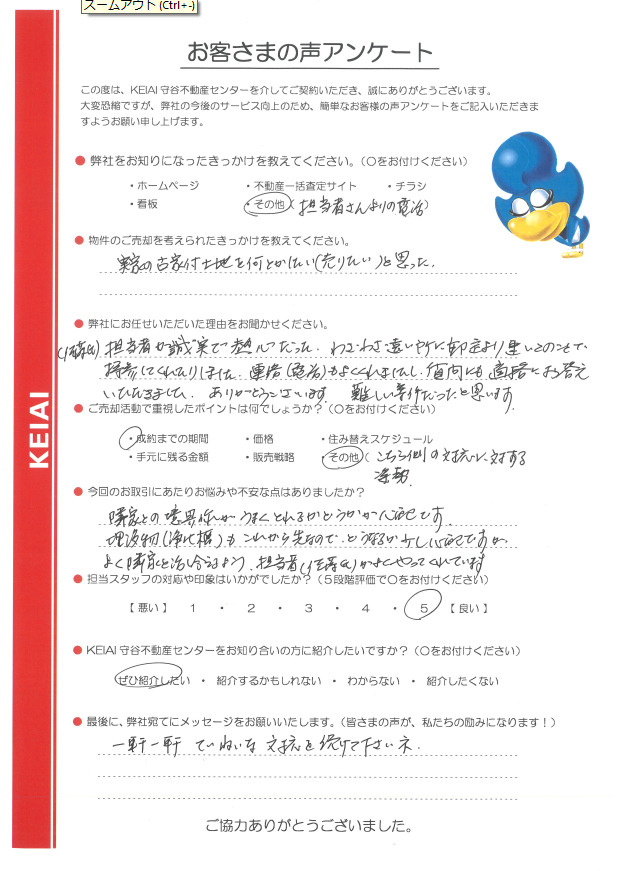 ズームアウト (Ctrl+-)
お客さまの声アンケート
この度は、KEIAI 守谷不動産センターを介してご契約いただき、誠にありがとうございます。
大変恐縮ですが、弊社の今後のサービス向上のため、簡単なお客様の声アンケートをご記入いただきま
すようお願い申し上げます。
● 弊社をお知りになったきっかけを教えてください。（○をお付けください）
・ホームページ ・不動産一括査定サイト ・チラシ
・看板 ・その他（担当者さんよりの電話）
● 物件のご売却を考えられたきっかけを教えてください。
実家の古家付土地を何とかしたい(売りたい)と思った.
● 弊社にお任せいただいた理由をお聞かせください。
担当者が誠実で熱心だった. わざわざ遠い所に予定より早いとのことで、
持参してくれたりしました. 連絡(電話)もよくくれましたし、質問にも直接にお答え
いただきまして、ありがとうございます. 難しい条件だったと思います.
● ご売却活動で重視したポイントは何でしょうか？（○をお付けください）
・成約までの期間 ・価格 ・住み替えスケジュール
・手元に残る金額 ・販売戦略 ・その他（こちら側の対抗に対する
● 今回のお取引にあたりお悩みや不安な点はありましたか？
隣家との境界線がうまくとれるかどうかが心配です.
埋設物(浄化槽)もこれから先なので、どうなるか少し心配ですが、
よく隣家と話し合うよう、担当者がよくやってくれています
● 担当スタッフの対応や印象はいかがでしたか？（５段階評価で○をお付けください）
【 悪い 】 1 ・ 2 ・ 3 ・ 4 ・ 5 【 良い 】
● KEIAI 守谷不動産センターをお知り合いの方に紹介したいですか？（○をお付けください）
ぜひ紹介したい ・ 紹介するかもしれない ・ わからない ・ 紹介したくない
● 最後に、弊社宛てにメッセージをお願いいたします。（皆さまの声が、私たちの励みになります！）
一軒一軒 ていねいな 対応を続けて下さいネ.
ご協力ありがとうございました。
KEIAI